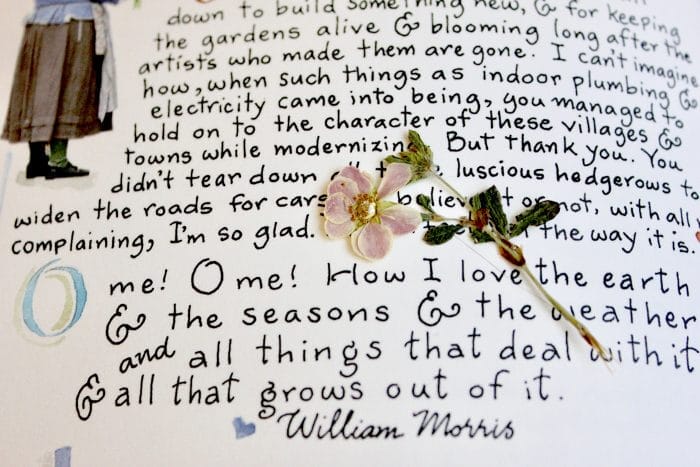 down to build something new, & for keeping
the gardens alive & blooming long after the
artists who made them are gone. I can't imagine
how, when such things as indoor plumbing &
electricity came into being, you managed to
hold on to the character of these villages &
towns while modernizing. But thank you. You
didn't tear down luscious hedgerows to
widen the roads for cars believe it or not, with all
complaining, I'm so glad. the way it is.
O me! O me! How I love the earth
& the seasons & the weather
and all things that deal with it
& all that grows out of it.
William Morris